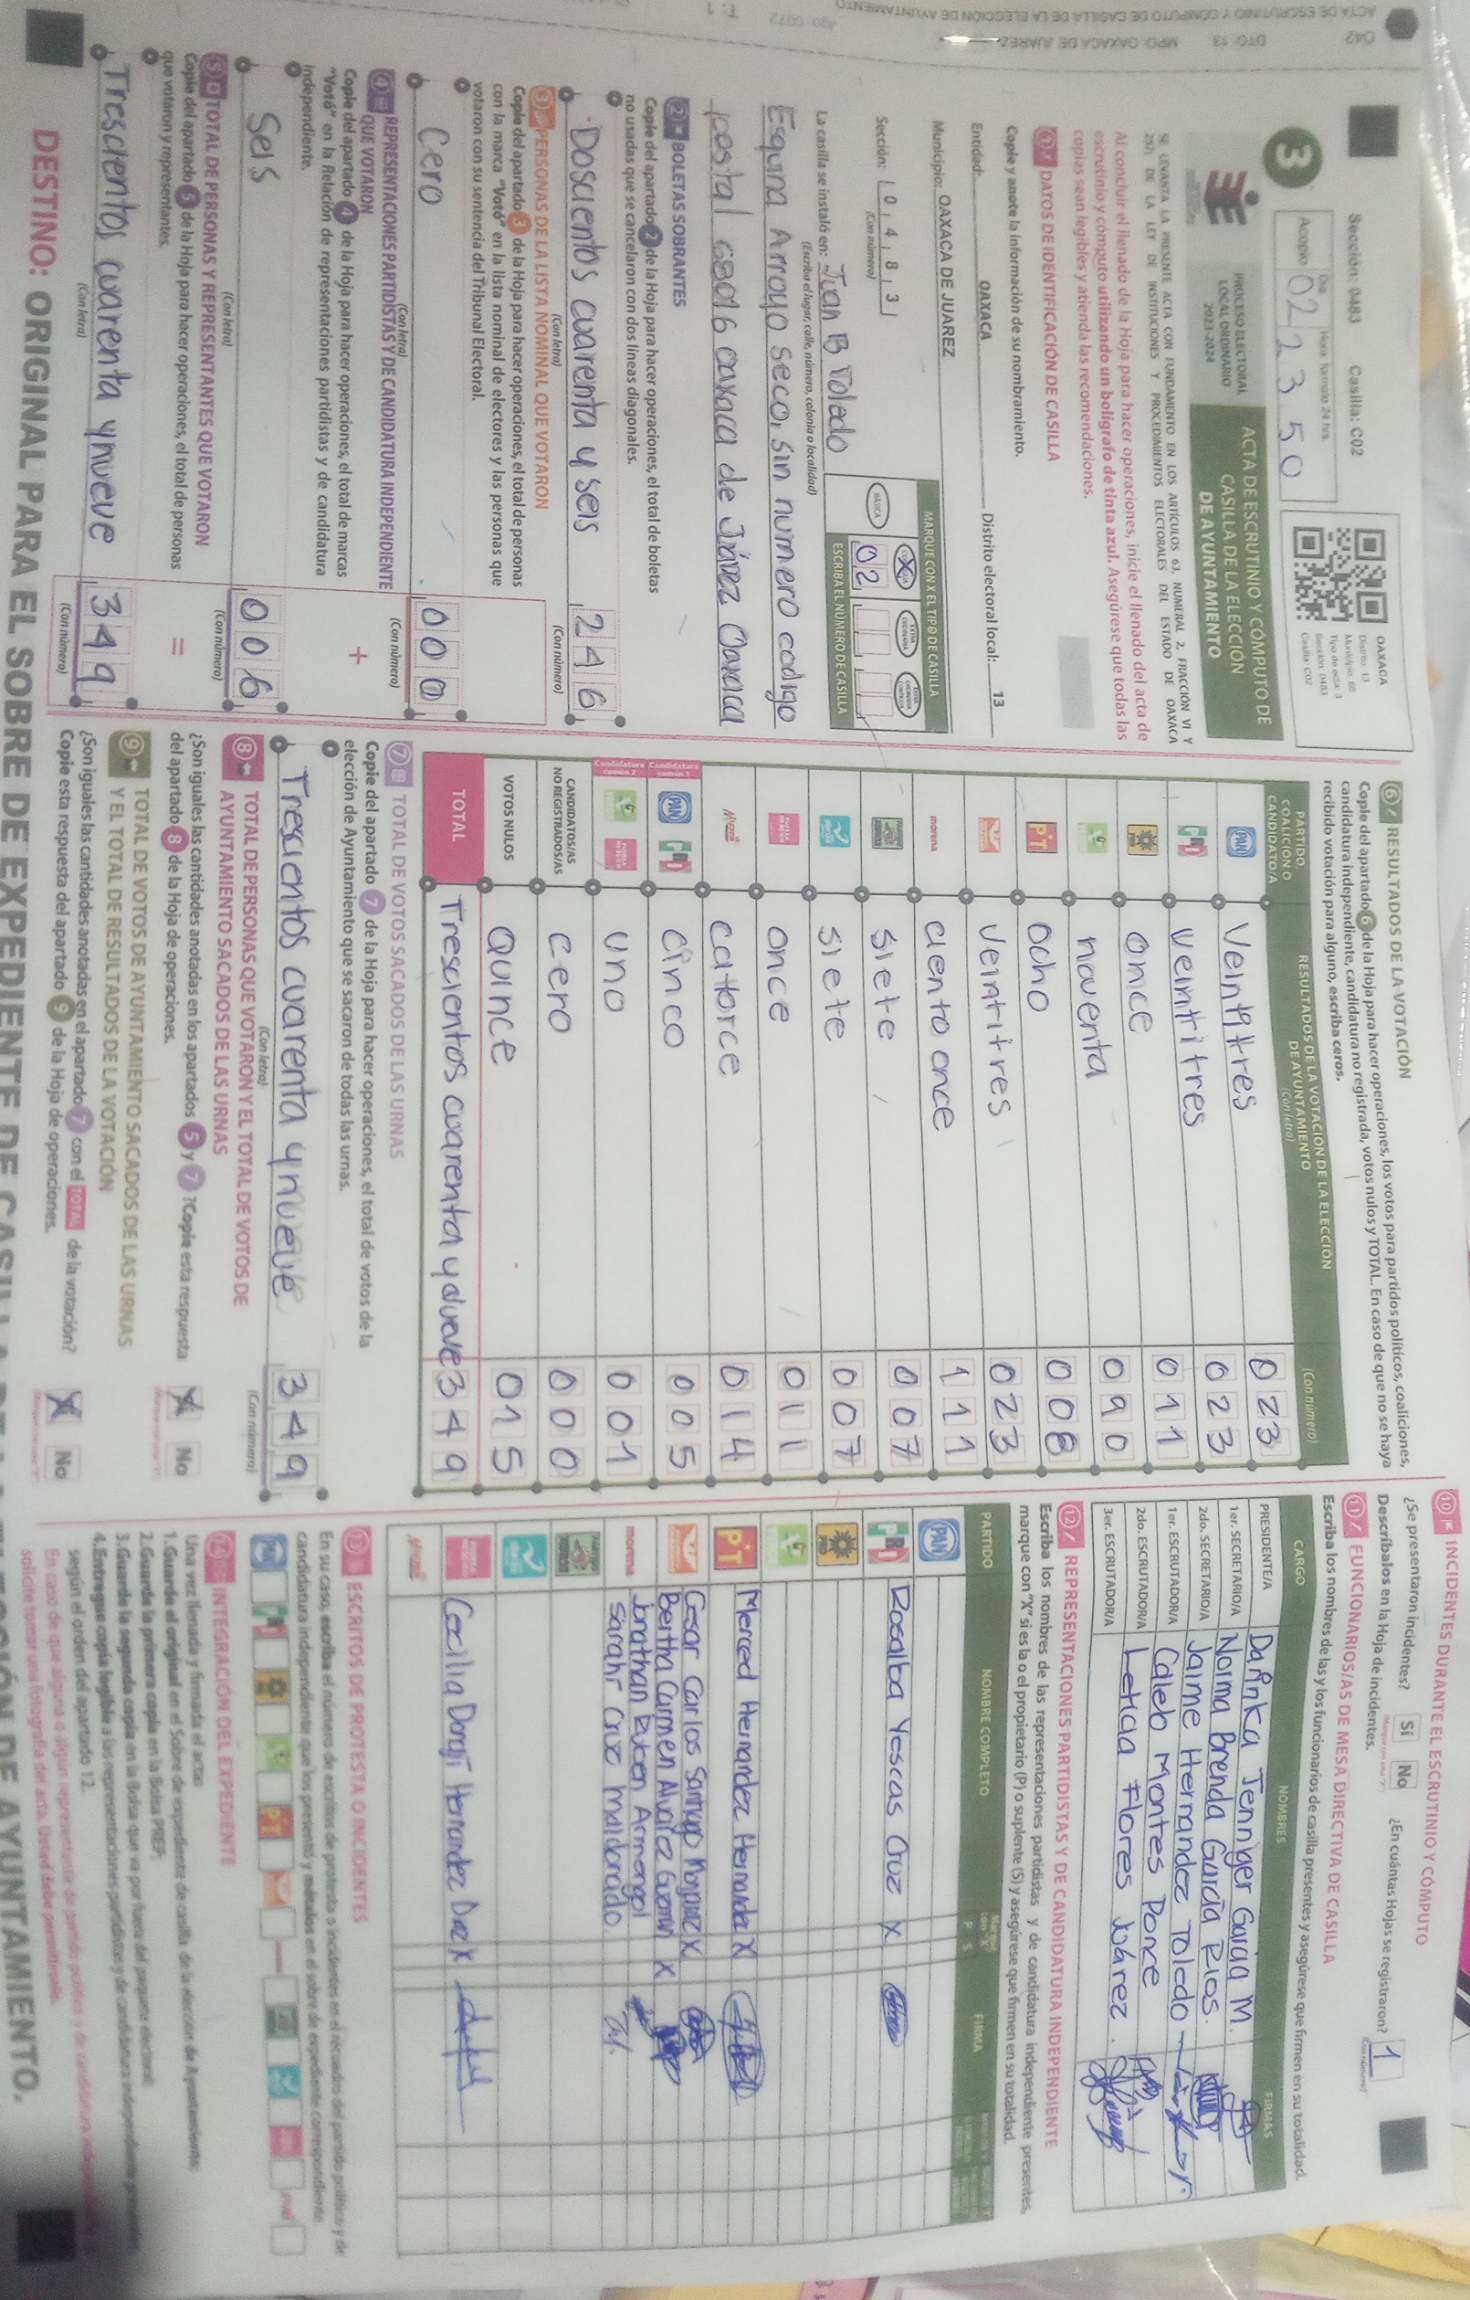 042 DTO: 13 MPO: OAXACA DE JUÁREZ
ACTA DE ESCRUTINIO Y CÓMPUTO DE CASILLA DE LA ELECCIÓN DE AYUNTAMIENTO
T: 1
Sección: 0483 Casilla: C02
Acopio
Día
Hora, formato 24 hrs
02 23 50
OAXACA
Distrito: 13
Municipio: 68
Tipo de acta: 3
Sección: 0483
Casilla: C02
3
PROCESO ELECTORAL
LOCAL ORDINARIO
2023-2024
ACTA DE ESCRUTINIO Y CÓMPUTO DE
CASILLA DE LA ELECCIÓN
DE AYUNTAMIENTO
SE LEVANTA LA PRESENTE ACTA CON FUNDAMENTO EN LOS ARTÍCULOS 63, NUMERAL 2, FRACCIÓN VI Y
257, DE LA LEY DE INSTITUCIONES Y PROCEDIMIENTOS ELECTORALES DEL ESTADO DE OAXACA
Al concluir el llenado de la Hoja para hacer operaciones, inicie el llenado del acta de
escrutinio y cómputo utilizando un bolígrafo de tinta azul. Asegúrese que todas las
copias sean legibles y atienda las recomendaciones.
1 DATOS DE IDENTIFICACIÓN DE CASILLA
Copie y anote la información de su nombramiento.
Entidad: OAXACA Distrito electoral local: 13
Municipio: OAXACA DE JUÁREZ
Sección: 0483
(Con número)
MARQUE CON X EL TIPO DE CASILLA
BÁSICA
X
02
ESCRIBA EL NÚMERO DE CASILLA
La casilla se instaló en: Juan B Toledo
(Escriba el lugar, calle, número, colonia o localidad)
Esquina Arroyo Seco, sin numero codigo
postal 68016 oaxaca de Juárez Oaxaca
2 BOLETAS SOBRANTES
Copie del apartado 2 de la Hoja para hacer operaciones, el total de boletas
no usadas que se cancelaron con dos líneas diagonales.
Doscientos cuarenta y seis 246
(Con letra) (Con número)
3 PERSONAS DE LA LISTA NOMINAL QUE VOTARON
Copie del apartado 3 de la Hoja para hacer operaciones, el total de personas
con la marca "Votó" en la lista nominal de electores y las personas que
votaron con su sentencia del Tribunal Electoral.
Cero 000
(Con letra) (Con número)
4 REPRESENTACIONES PARTIDISTAS Y DE CANDIDATURA INDEPENDIENTE
QUE VOTARON
+
Copie del apartado 4 de la Hoja para hacer operaciones, el total de marcas
"Votó" en la Relación de representaciones partidistas y de candidatura
independiente.
Seis 006
(Con letra) (Con número)
5 TOTAL DE PERSONAS Y REPRESENTANTES QUE VOTARON
=
Copie del apartado 5 de la Hoja para hacer operaciones, el total de personas
que votaron y representantes.
Trescientos cuarenta y nueve 349
(Con letra) (Con número)
6 RESULTADOS DE LA VOTACIÓN
Copie del apartado 6 de la Hoja para hacer operaciones, los votos para partidos políticos, coaliciones,
candidatura independiente, candidatura no registrada, votos nulos y TOTAL. En caso de que no se haya
recibido votación para alguno, escriba ceros.
PARTIDO, COALICIÓN O CANDIDATO/A
RESULTADOS DE LA VOTACIÓN DE LA ELECCIÓN
DE AYUNTAMIENTO
(Con letra) (Con número)
PAN Veintitres 023
PRI veintitres 023
PRD once 011
noventa 090
PT ocho 008
veintitres 023
morena ciento once 111
siete 007
siete 007
once 011
catorce 014
Candidatura común 1 PAN PRI cinco 005
Candidatura común 2 uno 001
CANDIDATOS/AS
NO REGISTRADOS/AS cero 000
VOTOS NULOS Quince 015
TOTAL Trescientos cuarenta y nueve 349
7 TOTAL DE VOTOS SACADOS DE LAS URNAS
Copie del apartado 7 de la Hoja para hacer operaciones, el total de votos de la
elección de Ayuntamiento que se sacaron de todas las urnas.
Trescientos cuarenta y nueve 349
(Con letra) (Con número)
8 TOTAL DE PERSONAS QUE VOTARON Y EL TOTAL DE VOTOS DE
AYUNTAMIENTO SACADOS DE LAS URNAS
¿Son iguales las cantidades anotadas en los apartados 5 y 7 ? Copie esta respuesta
del apartado 8 de la Hoja de operaciones.
X No
9 TOTAL DE VOTOS DE AYUNTAMIENTO SACADOS DE LAS URNAS
Y EL TOTAL DE RESULTADOS DE LA VOTACIÓN
¿Son iguales las cantidades anotadas en el apartado 7 con el TOTAL de la votación?
Copie esta respuesta del apartado 9 de la Hoja de operaciones.
X No
10 INCIDENTES DURANTE EL ESCRUTINIO Y CÓMPUTO
¿Se presentaron incidentes? Sí No ¿En cuántas Hojas se registraron? 1
Descríbalos en la Hoja de incidentes.
11 FUNCIONARIOS/AS DE MESA DIRECTIVA DE CASILLA
Escriba los nombres de las y los funcionarios de casilla presentes y asegúrese que firmen en su totalidad.
CARGO NOMBRES FIRMAS
PRESIDENTE/A Darinka Jenniger Garcia M.
1er. SECRETARIO/A Norma Brenda García Rios.
2do. SECRETARIO/A Jaime Hernandez Toledo
1er. ESCRUTADOR/A Caleb Montes Ponce
2do. ESCRUTADOR/A Leticia Flores Juárez.
3er. ESCRUTADOR/A
12 REPRESENTACIONES PARTIDISTAS Y DE CANDIDATURA INDEPENDIENTE
Escriba los nombres de las representaciones partidistas y de candidatura independiente presentes,
marque con "X" si es la o el propietario (P) o suplente (S) y asegúrese que firmen en su totalidad.
PARTIDO NOMBRE COMPLETO P S FIRMA
PAN
PRI Rosalba Yescas Cruz X
PRD
PT Merced Hernandez Hernandez X
Cesar Carlos Santiago X
Bertha Carmen Alvarez X
morena Jonathan Ruben Armengol
Sarahi Cruz maldonado
Cecilia Hernandez X
13 ESCRITOS DE PROTESTA O INCIDENTES
En su caso, escriba el número de escritos de protesta o incidentes en el recuadro del partido político y de
candidatura independiente que los presentó y métalos en el sobre de expediente correspondiente.
14 INTEGRACIÓN DEL EXPEDIENTE
Una vez llenada y firmada el acta:
1. Guarde el original en el Sobre de expediente de casilla de la elección de Ayuntamiento;
2. Guarde la primera copia en la Bolsa que va por fuera del paquete electoral;
3. Guarde la segunda copia en la Bolsa PREP;
4. Entregue copia legible a las representaciones partidistas y de candidatura independiente presentes,
según el orden del apartado 12.
DESTINO: ORIGINAL PARA EL SOBRE DE EXPEDIENTE DE CASILLA DE LA ELECCIÓN DE AYUNTAMIENTO.